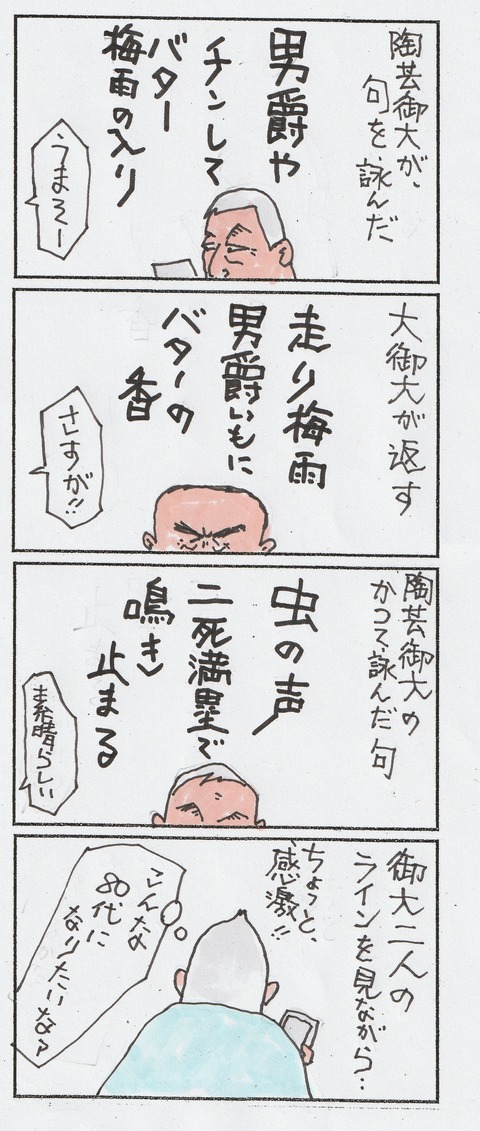 陶芸御大が、
句を、詠んだ
男爵や
チンして
バター
梅雨の入り
うまそー
大御大が返す
走り梅雨
男爵いもに
バターの
香
さすが!!
陶芸御大の
かつて、詠んだ句
虫の声
二死満塁で
鳴き
止まる
素晴らしい
御大二人の
ラインを見ながら…
ちょっと、
感激!!
こんな
80代に
なりたいなぁ